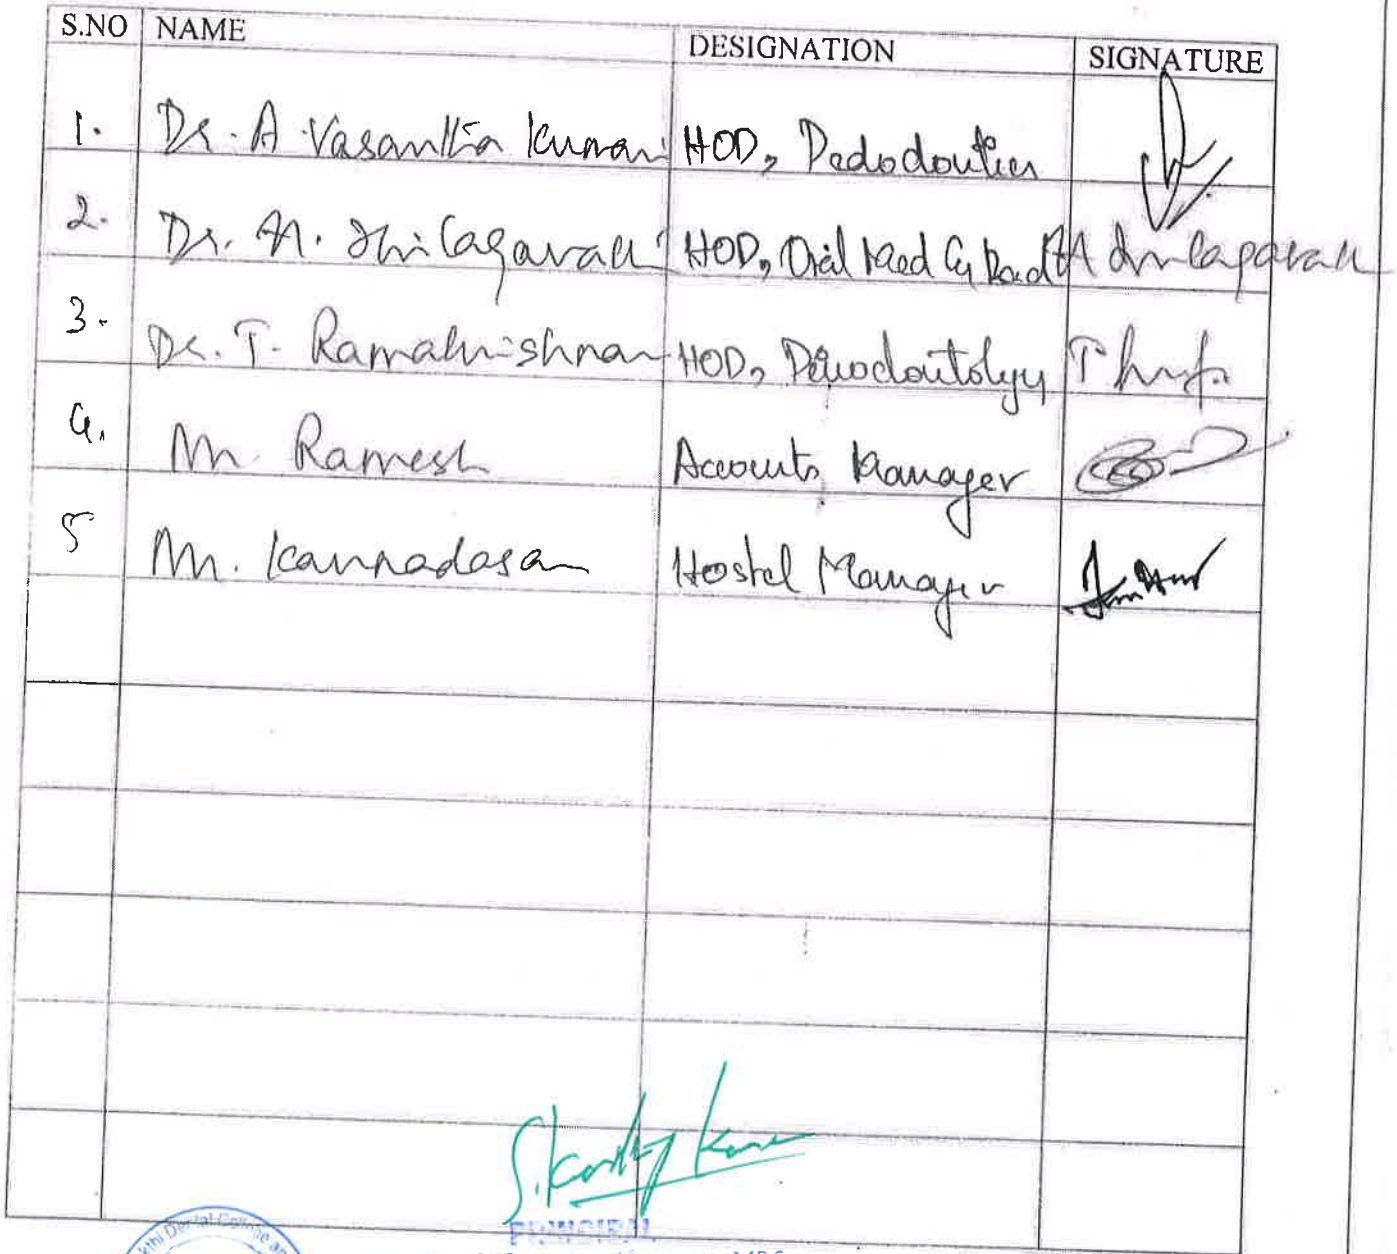 S.NO NAME DESIGNATION SIGNATURE
1. Dr. A Vasantha Kumari HOD, Pedodontics
2. Dr. A. Thilagavathi HOD, Oral Med &
3. Dr. T. Ramakrishnan HOD, Periodontology
4. Mr Ramesh Accounts Manager
5 Mr. Kannadasan Hostel Manager
PRINCIPAL
Dental College and
MDS